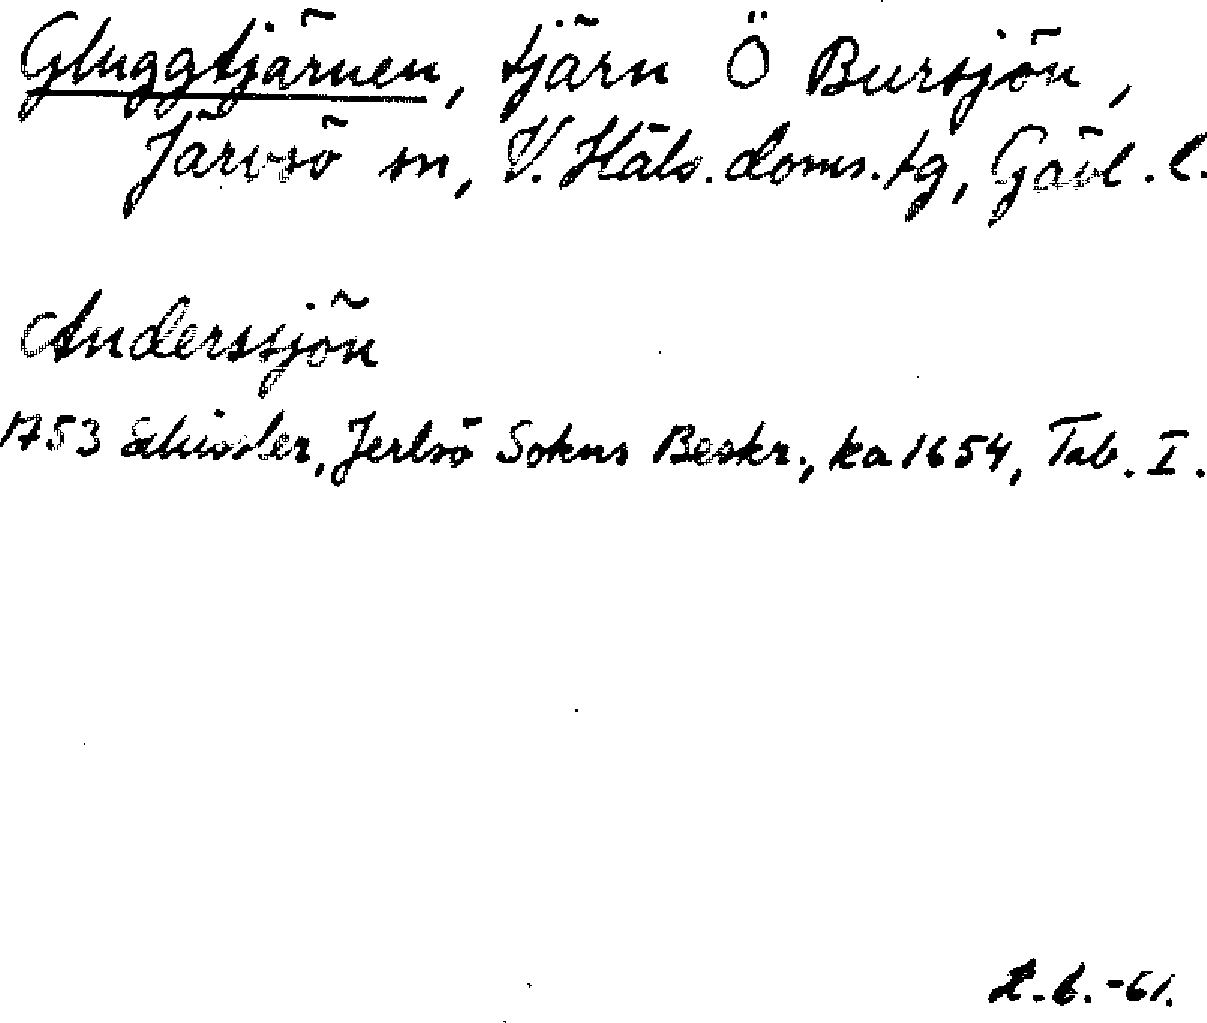 Gluggtjärnen, tjärn Ö Bursjön,
Järvsö sn, V. Häls. doms. tg, Gävl. l.
Anderssjön
1753 Schissler, Jerlsö Sokns Beskr., ka 1654, Tab. I.
2.6.-61.